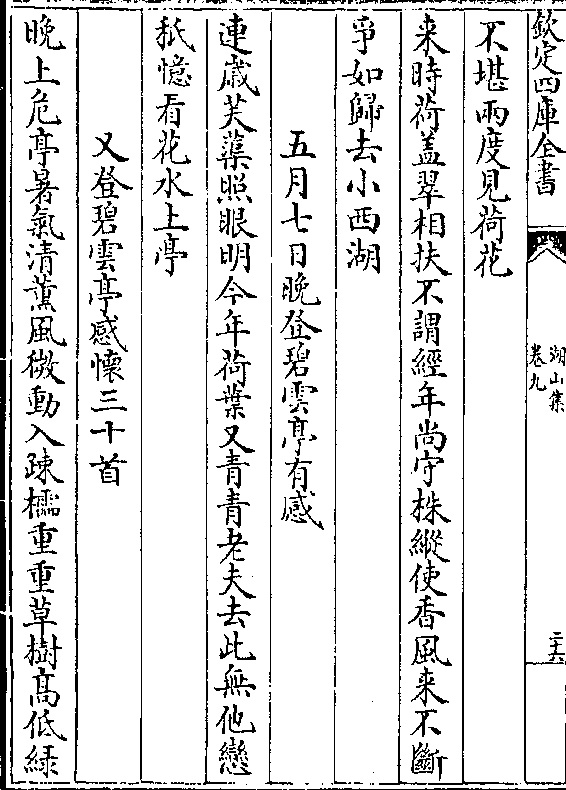 欽定四庫全書
湖山集
卷九
二十六
不堪兩度見荷花
来時荷盖翠相扶不謂經年尚守株縱使香風来不斷
爭如歸去小西湖
五月七日晚登碧雲亭有感
連歲芙蕖照眼明今年荷葉又青青老夫去此無他戀
秖憶看花水上亭
又登碧雲亭感懷三十首
晚上危亭暑氣清薰風微動入疎櫺重重草樹髙低緑